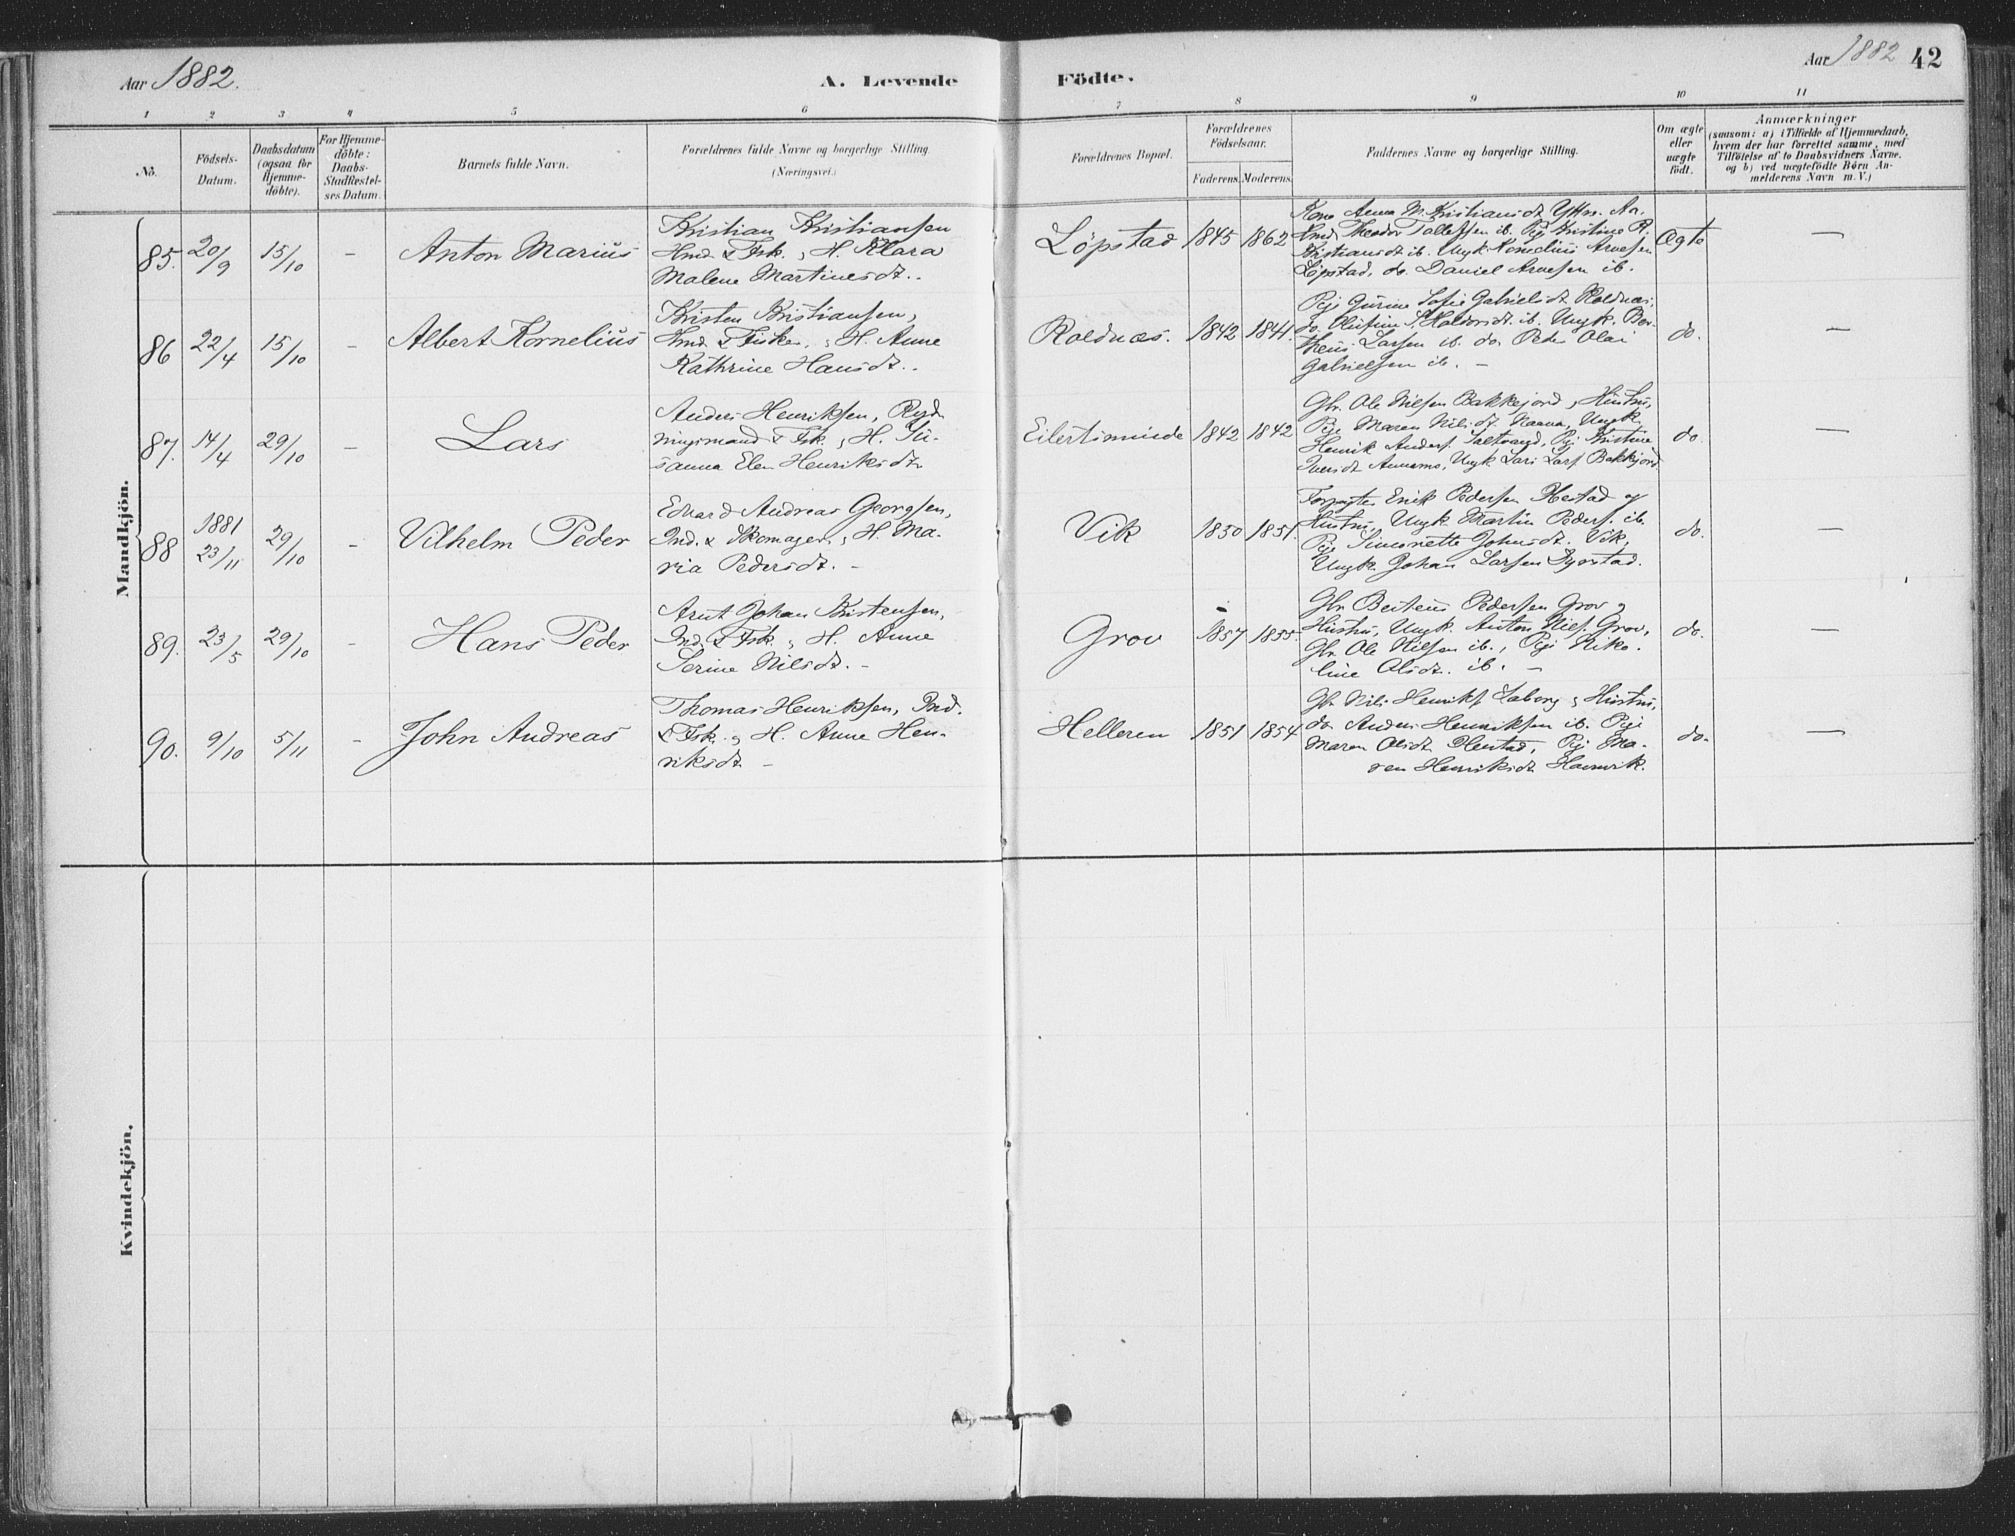 Aar 1882. A. Levende Födte. Aar 1882 42
1 2 3 4 5 6 7 8 9 10 11
No.
Födsels-
Datum.
Daabsdatum
(ogsaa for
Hjemme-
döbte).
For Hjemme-
döbte:
Daabs-
Stadfæstel-
ses Datum.
Barnets fulde Navn.
Forældrenes fulde Navne og borgerlige Stilling.
(Næringsvei.)
Forældrenes Bopæl.
Forældrenes
Födselsaar.
Faderens. Moderens.
Faddernes Navne og borgerlige Stilling.
Om ægte
eller
uægte
födt.
Anmærkninger
(saasom: a) i Tilfælde af Hjemmedaab,
hvem der har forrettet samme, med
Tilföielse af to Daabsvidners Navne,
og b) ved uægtefödte Börn An-
melderens Navn m. V.)
Mandkjön.
85. 20/9 15/10 - Anton Marius
Kristian Kristiansen
Hmd & Fsk. , H. Klara
Malene Martinesdt..
Löpstad 1845 1862
Kone Anna M. Kristiansdt
Hmd. Theodor Tollefsen ib. Pige Kristine R.
Kristiansdt ib. Ungk. Kornelius Arnesen
Löpstad, do. Daniel Arnesen ib.
Ægte —
86 22/4 15/10 - Albert Kornelius
Kristen Kristiansen,
Hmd & Fisker, , H. Anne
Kathrine Hansdt..
Roldnæs. 1842 1841.
Pige Gurine Sofie Gabrielsdt Roldnæs,
do. Olufine S. Haldorsdt. ib. Ungk. Ber-
theus Larsen ib. do Peder Olai
Gabrielsen ib. -
do. —
87. 14/4 29/10 Lars
Anders Henriksen, Ryd-
ningsmand & Fsk. , H. Su-
sanna Elen Henriksdt.
Eilertsminde 1842 1842
Gbr. Ole Nilsen Bakkejord , Hustru,
Pige Maren Nilsdt. , Ungk.
Henrik Anders. , Pig Kristine
Iversdt , Ungk. Lars Lars. Bakkejord
do. —
88 1881 23/11 29/10 - Vilhelm Peder
Edvard Andreas Georgsen,
Ind. & Skomager , H. Ma-
ria Pedersdt. -
Vik 1850 1851.
Forpagter Erik Pedersen Hestad og
Hustru, Ungk. Martin Peders. ib.
Pige Simonette Johnsdt. Vik,
Ungk. Johan Larsen
do. —
89. 23/5 29/10 - Hans Peder
Arnt Johan Kristensen,
Ind. & Fsk. , H. Anne
Serine Nilsdt. -
Grov 1857 1855.
Gbr. Berteus Pedersen Grov og
Hustru, Ungk. Anton Nils. Grov,
Gbr. Ole Nilsen ib., Pige Niko-
line Olsdt. ib. -
do. —
90. 9/10 5/11 - John Andreas
Thomas Henriksen, Ind.
& Fsk. , H. Anne Hen-
riksdt -
Helleren 1851 1854
Gbr. Nils Henriks. , Hustru,
do Anders Henriksen ib. Pige
Maren Olsdt , Pig Ma-
ren Henriksdt Havnvik.
do. —
Kvindekjön.